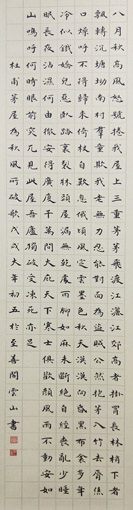 八月秋高風怒號捲我屋上三重茅茅飛渡江灑江郊高者掛罥長林梢下者
飄轉沉塘坳南村群童欺我老無力忍能對面為盜賊公然抱茅入竹去脣焦
口燥呼不得歸來倚杖自歎息俄頃風定雲墨色秋天漠漠向昏黑布衾多年
冷似鐵嬌兒惡臥踏裏裂床頭屋漏無乾處雨腳如麻未斷絕自經喪亂少睡
眠長夜沾濕何由徹安得廣廈千萬間大庇天下寒士俱歡顏風雨不動安如
山嗚呼何時眼前突兀見此屋吾廬獨破受凍死亦足
杜甫茅屋為秋風所破歌戊戌大年初五於至善閣雲山書